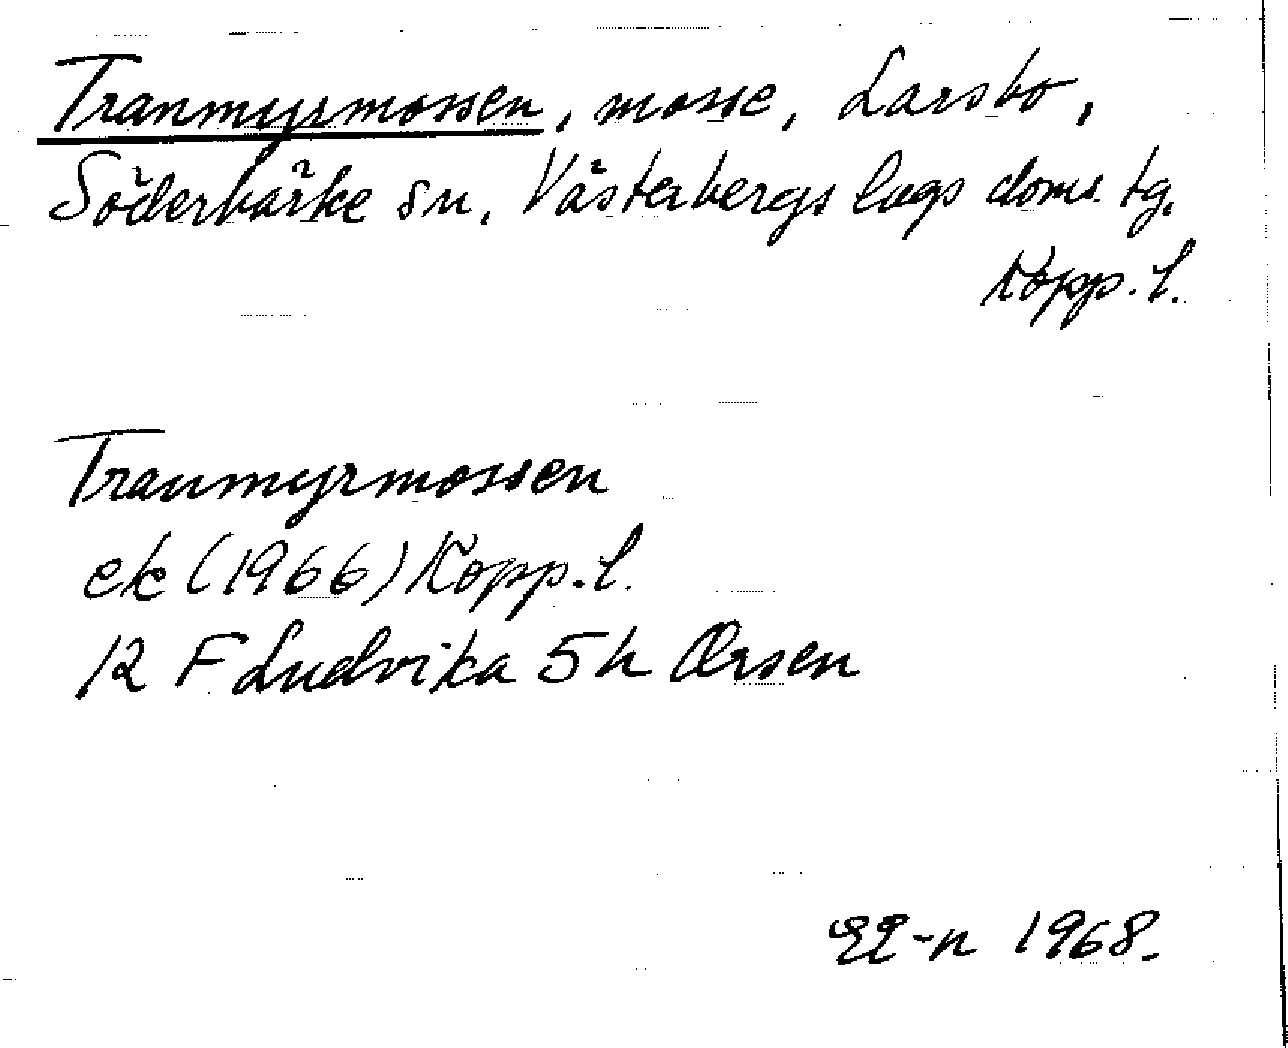 Tranmyrmossen, mosse, Larsbo,
Söderbärke sn, Västerbergslags doms. tg.
Kopp. l.
Tranmyrmossen
ek (1966) Kopp. l.
12 F Ludvika 5 h Örsen
1968.